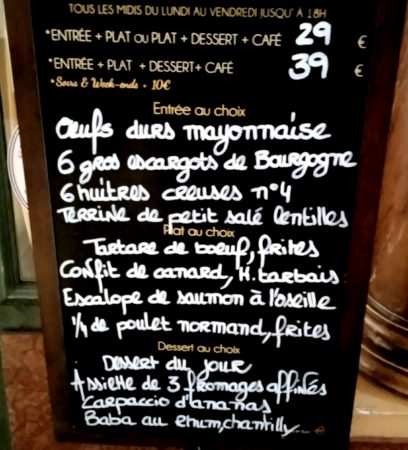 TOUS LES MIDIS DU LUNDI AU VENDREDI JUSQU'À 18H
*ENTRÉE + PLAT OU PLAT + DESSERT + CAFÉ 29 €
*ENTRÉE + PLAT + DESSERT + CAFÉ 39 €
*Soirs & Week-ends + 10€
Entrée au choix
Œufs durs mayonnaise
6 gros escargots de Bourgogne
6 huîtres creuses n°4
Terrine de petit salé lentilles
Plat au choix
Tartare de boeuf, frites
Confit de canard, H. tarbais
Escalope de saumon à l'oseille
1/4 de poulet normand, frites
Dessert au choix
Dessert du jour
Assiette de 3 fromages affinés
Carpaccio d'ananas
Baba au rhum, chantilly